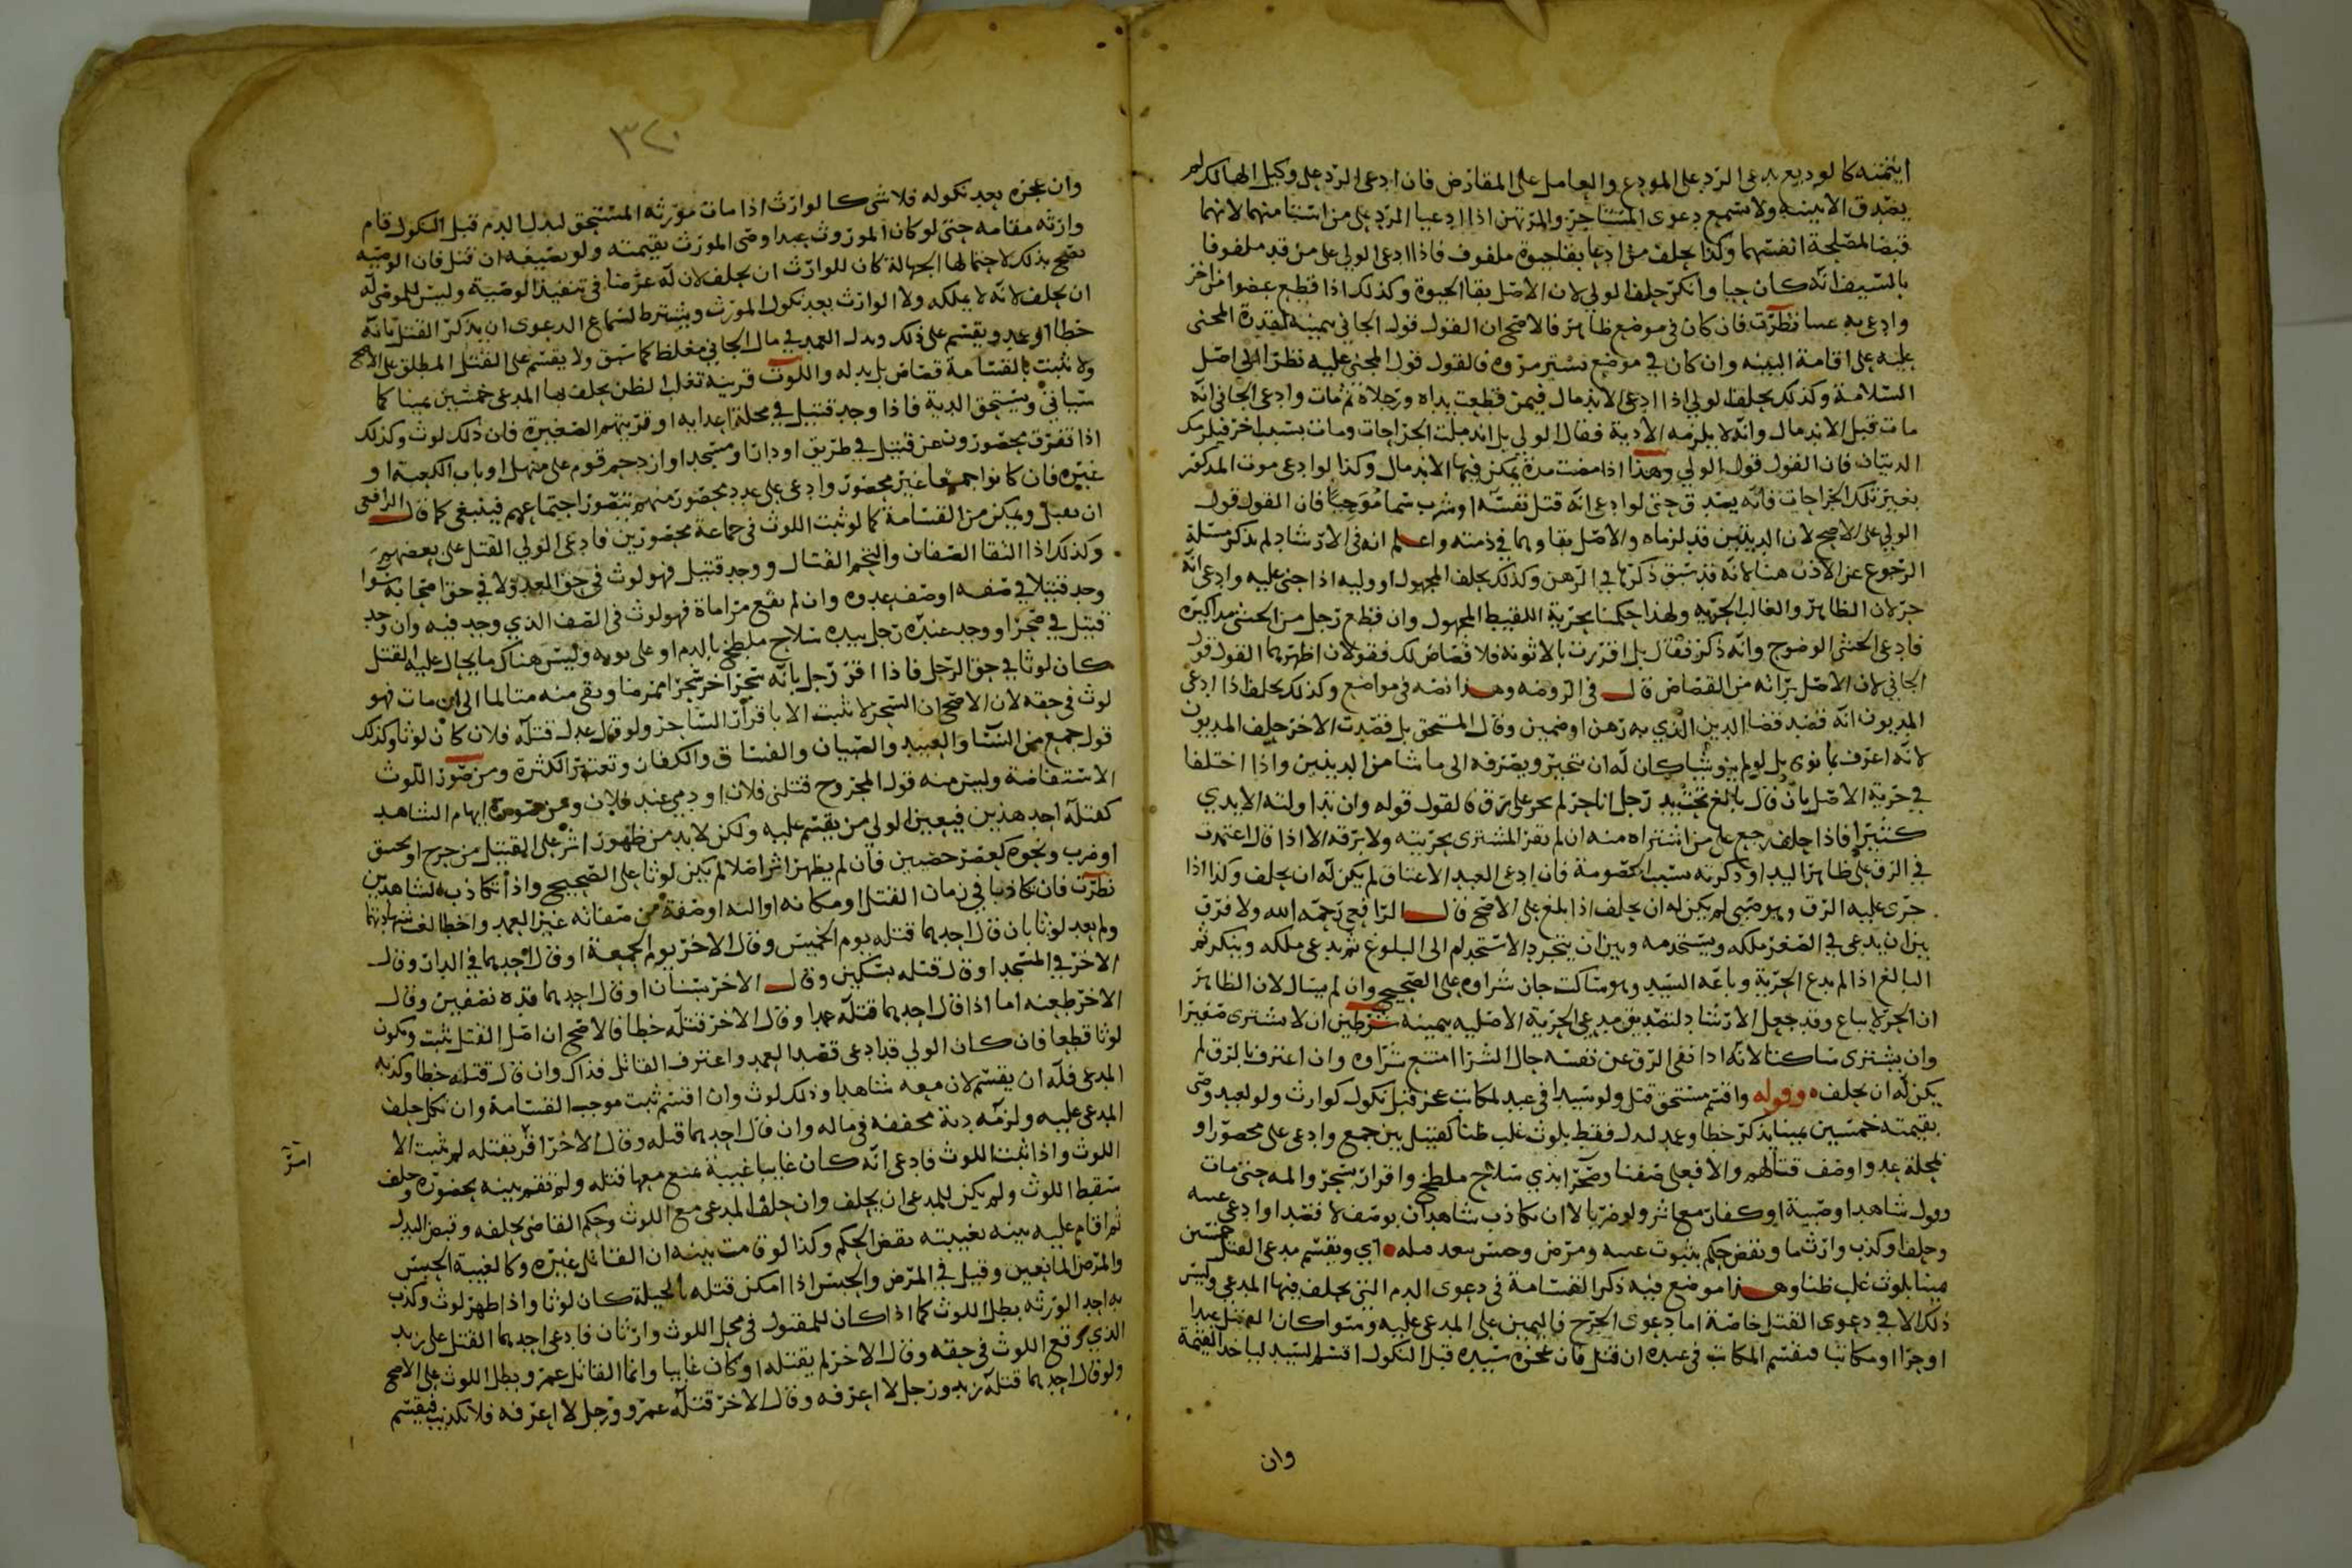 ائتمنه كالوديع يدعى الرد على المودع والعامل على المقارض فان ادعى الرد على وكيل المالك لم
يصدق الا ببينة ولا تسمع دعوى المستاجر والمرتهن اذا ادعيا الرد على من ائتمنا منهما لانهما
قبضا لمصلحة انفسهما وكذا يحلف من ادعا بقا حيوة ملفوف فاذا ادعى الولي على من قد ملفوفا
بالسيف انه كان حيا وانكر حلف الولي لان الاصل بقا الحيوة وكذلك اذا قطع عضوا من اخر
وادعى به عيبا نظرت فان كان في موضع ظاهر فالاصح ان القول قول الجاني بيمينه لقدرة المجنى
عليه على اقامة البينه وان كان في موضع تستر مروه فالقول قول المجنى عليه نظرا الى اصل
السلامة وكذلك يحلف الولي اذا ادعى الاندمال فيمن قطعت يداه ورجلاه ثم مات وادعى الجاني انه
مات قبل الاندمال وانه لا يلزمه الادية فقال الولي بل اندملت الجراحات ومات بسبب اخر فيلزمك
الديتان فان القول قول الولي وهذا اذا مضت مدة يمكن فيها الاندمال وكذا لو ادعى موت المذكور
بغير تلك الجراحات فانه يصدق حتى لو ادعى انه قتل نفسه او شرب سما موحيا فان القول قول
الولي على الاصح لان الديتين قد لزماه والاصل بقاوهما في ذمته واعلم انه في الارشاد لم يذكر مسئلة
الرجوع عن الاذن هنا لانه قد سبق ذكرها في الرهن وكذلك يحلف المجهول او وليه اذا جنى عليه وادعى انه
حر لان الظاهر والغالب الحريه ولهذا حكمنا بحرية اللقيط المجهول وان قطع رجل من الخنثى مذاكيره
فادعى الخنثى الوضوح وانه ذكر فقال بل اقررت بالانوثه فلا قصاص لك فقولان اظهرهما القول قول
الجاني لان الاصل برائه من القصاص قال في الروضه وهذا نصه في مواضع وكذلك يحلف اذا ادعى
المديون انه قصد قضا الدين الذي به رهن او ضمين وقال المستحق بل قصدت الاخر حلف المديون
لانه اعرف بما نوى بل لو لم ينو شيا كان له ان يتخير ويصرفه الى ما شا من الدينين واذا اختلفا
في حرية الاصل بان قال بالغ تحت يد رجل انا حر لم يجر على رق فالقول قوله وان تداولته الايدي
كثيرا فاذا حلف رجع على من اشتراه منه ان لم يقر المشترى بحريته ولا برقه الا اذا قال اعتمدت
في الرق على ظاهر اليد او ذكرته سبب الخصومة فان ادعى العبد الاعتاق لم يكن له ان يحلف وكذا اذا
جرى عليه الرق وهو صبي لم يكن له ان يحلف اذا بلغ على الاصح قال الرافعي رحمه الله ولا فرق
بين ان يدعى في الصغر ملكه ويستخدمه وبين ان يتجرد الاستخدام الى البلوغ ثم يدعى ملكه وينكر ثم
البالغ اذا لم يدع الحرية وباعه السيد وهو ساكت جاز شراوه على الصحيح وان لم يسال لان الظاهر
ان الحر لا يباع وقد جعل الارشاد لتصديق مدعى الحرية الاصليه بيمينه شرطين ان لا يشترى صغيرا
وان يشترى ساكتا لانه اذا نفى الرق عن نفسه حال الشرا امتنع شراوه وان اعترف بالرق لم
يكن له ان يحلف وقوله واقسم مستحق قتل ولو سيدا في عبد لمكاتب عجز قبل نكول كوارث ولو لعبد وصى
بقيمته خمسين يمينا بذكر خطا وعمد لبدل فقط بلوث غلب ظنا كقتيل بين جمع وادعى على محصور او
بمحلة عدو او صف قتالهم والا فعلى صفنا وصحرا بذي سلاح ملطخ واقرار بسحر والمه حتى مات
وقول شاهد او صبية او كفار مع اثر ولو ضربا لا ان تكاذب شاهدان بوصف لا فقد ا وادعى غيبه
وحلف او كذب وارث ما ونقض حكم بثبوت غيبه ومرض وحبس بعد قتله اي ويقسم مدعى القتل خمسين
يمينا بلوث غلب ظنا وهذا موضع فيه ذكر القسامة في دعوى الدم التي يحلف فيها المدعى وليس
ذلك الا في دعوى القتل خاصة اما دعوى الجرح فاليمين على المدعى عليه وسوا كان القتيل عبدا
او حرا او مكاتبا فيقسم المكاتب في عبده ان قتل فان عجزه سيده قبل النكول اقسم السيد لياخذ القيمة
وان
٣٢٠
وان عجزه بعد نكوله فلا شى كالوارث اذا مات مورثه المستحق لبدل الدم قبل النكول قام
وارثه مقامه حتى لو كان الموروث عبدا وصى المورث بقيمته ولو بصيغه ان قتل فان الوصية
تصح بذلك لاحتمالها الجهالة كان للوارث ان يحلف لان له غرضا في تنفيذ الوصية وليس للموصى له
ان يحلف لانه لا يملكه ولا الوارث بعد نكول المورث ويشترط لسماع الدعوى ان يذكر القتل بانه
خطا او عمد ويقسم على ذلك وبدل العمد في مال الجاني مغلظ كما سبق ولا يقسم على القتل المطلق على الاصح
ولا تثبت بالقسامة قصاص بل بدله واللوث قرينة تغلب الظن يحلف بها المدعى خمسين يمينا كما
سياتي ويستحق الدية فاذا وجد قتيل في محلة اعدايه او قريتهم الصغيرة فان ذلك لوث وكذلك
اذا تفرق محصورون عن قتيل في طريق او دار او مسجد او ازدحم قوم على منهل او باب الكعبة او
غيره فان كانوا جميعا غير محصور وادعى على عدد محصور منهم يتصور اجتماعهم فينبغي كما قال الرافعى
ان يقبل ويمكن من القسامة كما لو ثبت اللوث في جماعة محصورين فادعى الولي القتل على بعضهم
وكذلك اذا التقا الصفان والتحم القتال ووجد قتيل فهو لوث في حق العدو لا في حق اصحابه سوا
وجد قتيلا في صفه او صف عدوه وان لم يقع مراماة فهو لوث في الصف الذي وجد فيه وان وجد
قتيل في صحرا ووجد عنده رجل بيده سلاح ملطخ بالدم او على ثوبه وليس هناك ما يحال عليه القتل
كان لوثا في حق الرجل فاذا اقر رجل بانه سحر اخر سحرا ممرضا وبقى منه متالما الى ان مات فهو
لوث في حقه لان الاصح ان السحر لا يثبت الا باقرار الساحر ولو قال عدل قتله فلان كان لوثا وكذلك
قول جمع من النسا والعبيد والصبيان والفساق والكفار وتعتبر الكثرة ومن صور اللوث
الاستفاضة وليس منه قول المجروح قتلنى فلان او دمي عند فلان ومن صوره ابهام الشاهد
كقتله احد هذين فيعين الولي من يقسم عليه ولكن لابد من ظهور اثر على القتيل من جرح او خنق
او ضرب ونحوه كعصر خصيين فان لم يظهر اثر اصلا لم يكن لوثا على الصحيح واذا تكاذب الشاهدين
نظرت فان تكاذبا في زمان القتل او مكانه او الته او صفة من صفاته غير العمد والخطا لغت شهادتهما
ولم يعد لوثا بان قال احدهما قتله يوم الخميس وقال الاخر يوم الجمعة او قال احدهما في الدار وقال
الاخر في المسجد او قال قتله بسكين وقال الاخر بسنان او قال احدهما قده نصفين وقال
الاخر طعنه اما اذا قال احدهما قتله عمدا وقال الاخر قتله خطا فالاصح ان اصل القتل يثبت ويكون
لوثا قطعا فان كان الولي قد ادعى قصد العمد واعترف القاتل فذاك وان قال قتلته خطا وكذبه
المدعى فله ان يقسم لان معه شاهدا وذلك لوث وان اقسم ثبت موجب القسامة وان نكل حلف
المدعى عليه ولزمه دية مخففه في ماله وان قال احدهما قتله وقال الاخر اقر بقتله لم يثبت الا
اللوث واذا ثبت اللوث فادعى انه كان غايبا غيبة يمنع معها قتله ولم تقم بينه بحضوره وحلف
سقط اللوث ولم يكن للمدعى ان يحلف وان حلف المدعى مع اللوث وحكم القاضى بحلفه وقبض البدل
ثم اقام عليه بينه بغيبته نقض الحكم وكذا لو قامت بينه ان القاتل غيره وكالغيبة الحبس
والمرض المانعين وقيل في المرض والحبس اذا امكن قتله بالحيلة كان لوثا واذا ظهر لوث وكذب
به احد الورثه بطل اللوث كما اذا كان للمقتول في محل اللوث وارثان فادعى احدهما القتل على زيد
الذي وقع اللوث في حقه وقال الاخر لم يقتله او كان غايبا وانما القاتل عمرو وبطل اللوث على الاصح
ولو قال احدهما قتله زيد ورجل لا اعرفه وقال الاخر قتله عمرو ورجل لا اعرفه فلا تكذيب فيقسم